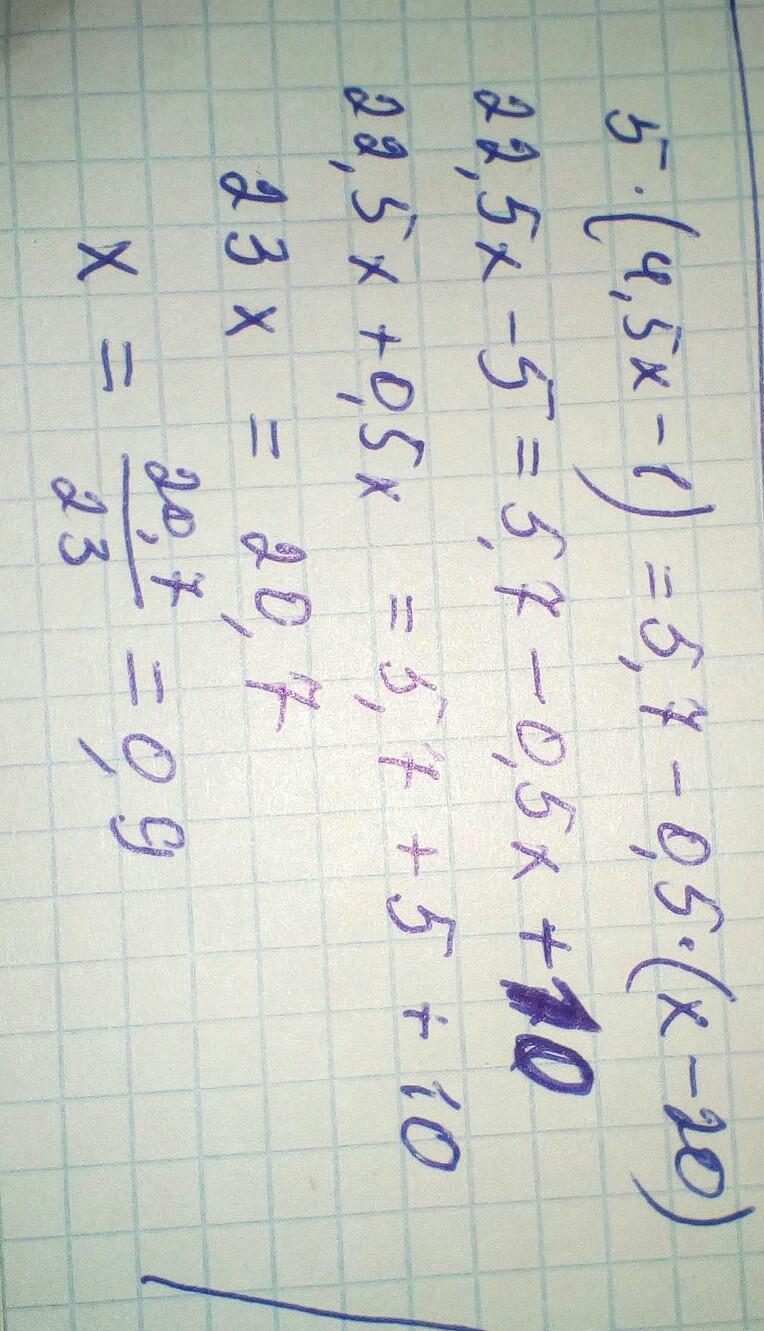 5·(4,5x-1) = 5,7-0,5·(x-20)
22,5x-5=5,7-0,5x+10
22,5x+0,5x = 5,7+5+10
23x = 20,7
x = 20,7/23 = 0,9